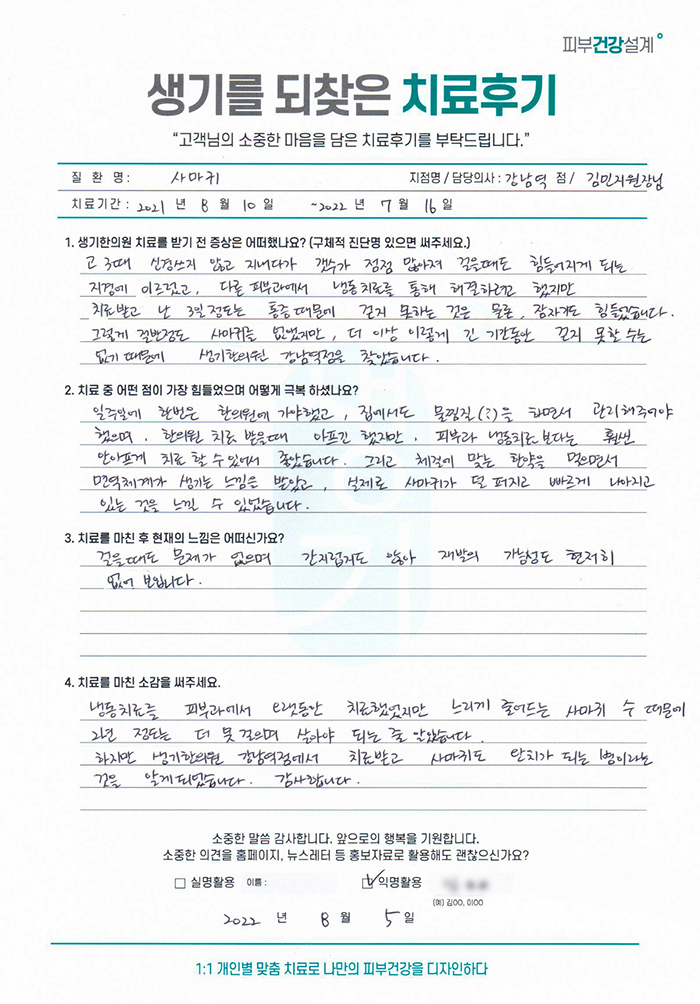 피부건강설계
생기를 되찾은 치료후기
“고객님의 소중한 마음을 담은 치료후기를 부탁드립니다.”
질 환 명 : 사마귀 지점명 / 담당의사 : 강남역 점 / 김민지원장님
치료기간 : 2021 년 8 월 10 일 ~2022 년 7 월 16 일
1. 생기한의원 치료를 받기 전 증상은 어떠했나요? (구체적 진단명 있으면 써주세요.)
고 3때 신경쓰지 않고 지내다가 갯수가 점점 많아져 걸을때도 힘들어지게 되는
지경에 이르렀고, 다른 피부과에서 냉동치료를 통해 해결하려고 했지만
치료받고 난 3일정도는 통증때문에 걷지 못하는 것은 물론, 잠자기도 힘들었습니다.
그렇게 절반정도 사마귀를 없앴지만, 더 이상 이렇게 긴 기간동안 걷지 못할 수는
없기 때문에 생기한의원 강남역점을 찾았습니다.
2. 치료 중 어떤 점이 가장 힘들었으며 어떻게 극복 하셨나요?
일주일에 한번은 한의원에 가야했고, 집에서도 물찜질(?)을 하면서 관리해주어야
했으며, 한의원 치료 받을때 아프긴 했지만, 피부과 냉동치료보다는 훨씬
안아프게 치료 할 수 있어서 좋았습니다. 그리고 체질에 맞는 한약을 먹으면서
면역체계가 생기는 느낌은 받았고, 실제로 사마귀가 덜 퍼지고 빠르게 나아지고
있는 것을 느낄 수 있었습니다.
3. 치료를 마친 후 현재의 느낌은 어떠신가요?
걸을때도 문제가 없으며 간지럽지도 않아 재발의 가능성도 현저히
없어 보입니다.
4. 치료를 마친 소감을 써주세요.
냉동치료를 피부과에서 오랫동안 치료했었지만 느리게 줄어드는 사마귀 수 때문에
2년 정도는 더 못 걸으며 살아야 되는 줄 알았습니다.
하지만 생기한의원 강남역점에서 치료받고 사마귀도 완치가 되는 병이라는
것을 알게되었습니다. 감사합니다.
소중한 말씀 감사합니다. 앞으로의 행복을 기원합니다.
소중한 의견을 홈페이지, 뉴스레터 등 홍보자료로 활용해도 괜찮으신가요?
□ 실명활용 이름 : ☑ 익명활용
(예) 김OO, 이OO
2022 년 8 월 5 일
1:1 개인별 맞춤 치료로 나만의 피부건강을 디자인하다